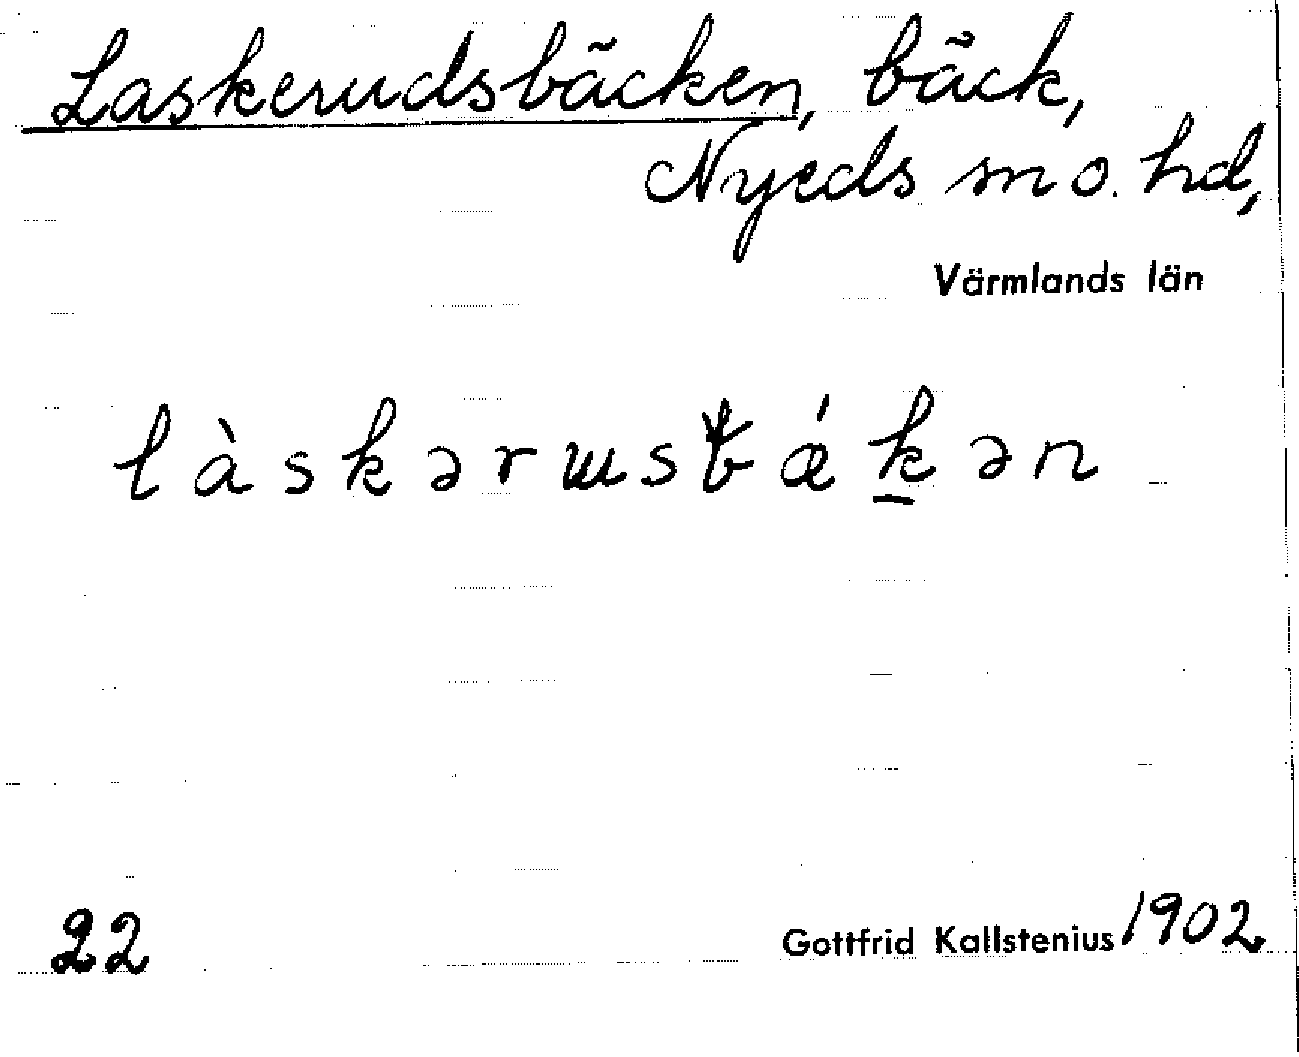 Laskerudsbäcken, bäck,
Nyeds sn o. hd,
Värmlands län
làskərɯsbǽk̲ən
22
Gottfrid Kallstenius 1902